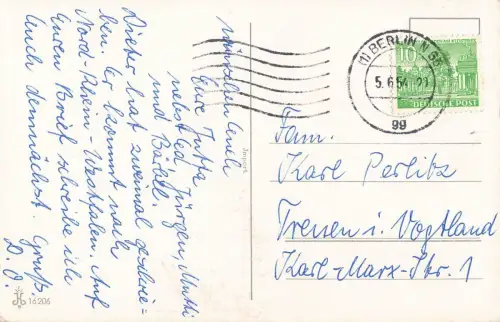 wünschen Euch
Eure Tutta
nebst Ed, Jürgen, Mutti
und Bärbel.
Dieter hat zweimal geschrie-
ben. Er kommt nach
Nord-Rhein-Westfalen. Auf
Euren Brief schreibe ich
Euch demnächst. Gruß
D. O.
Import
16206
(1) BERLIN N
5.6.54.-21
gg
10
DEUTSCHE POST
Fam.
Karl Perlitz
Treuen i. Vogtland
Karl-Marx-Str. 1